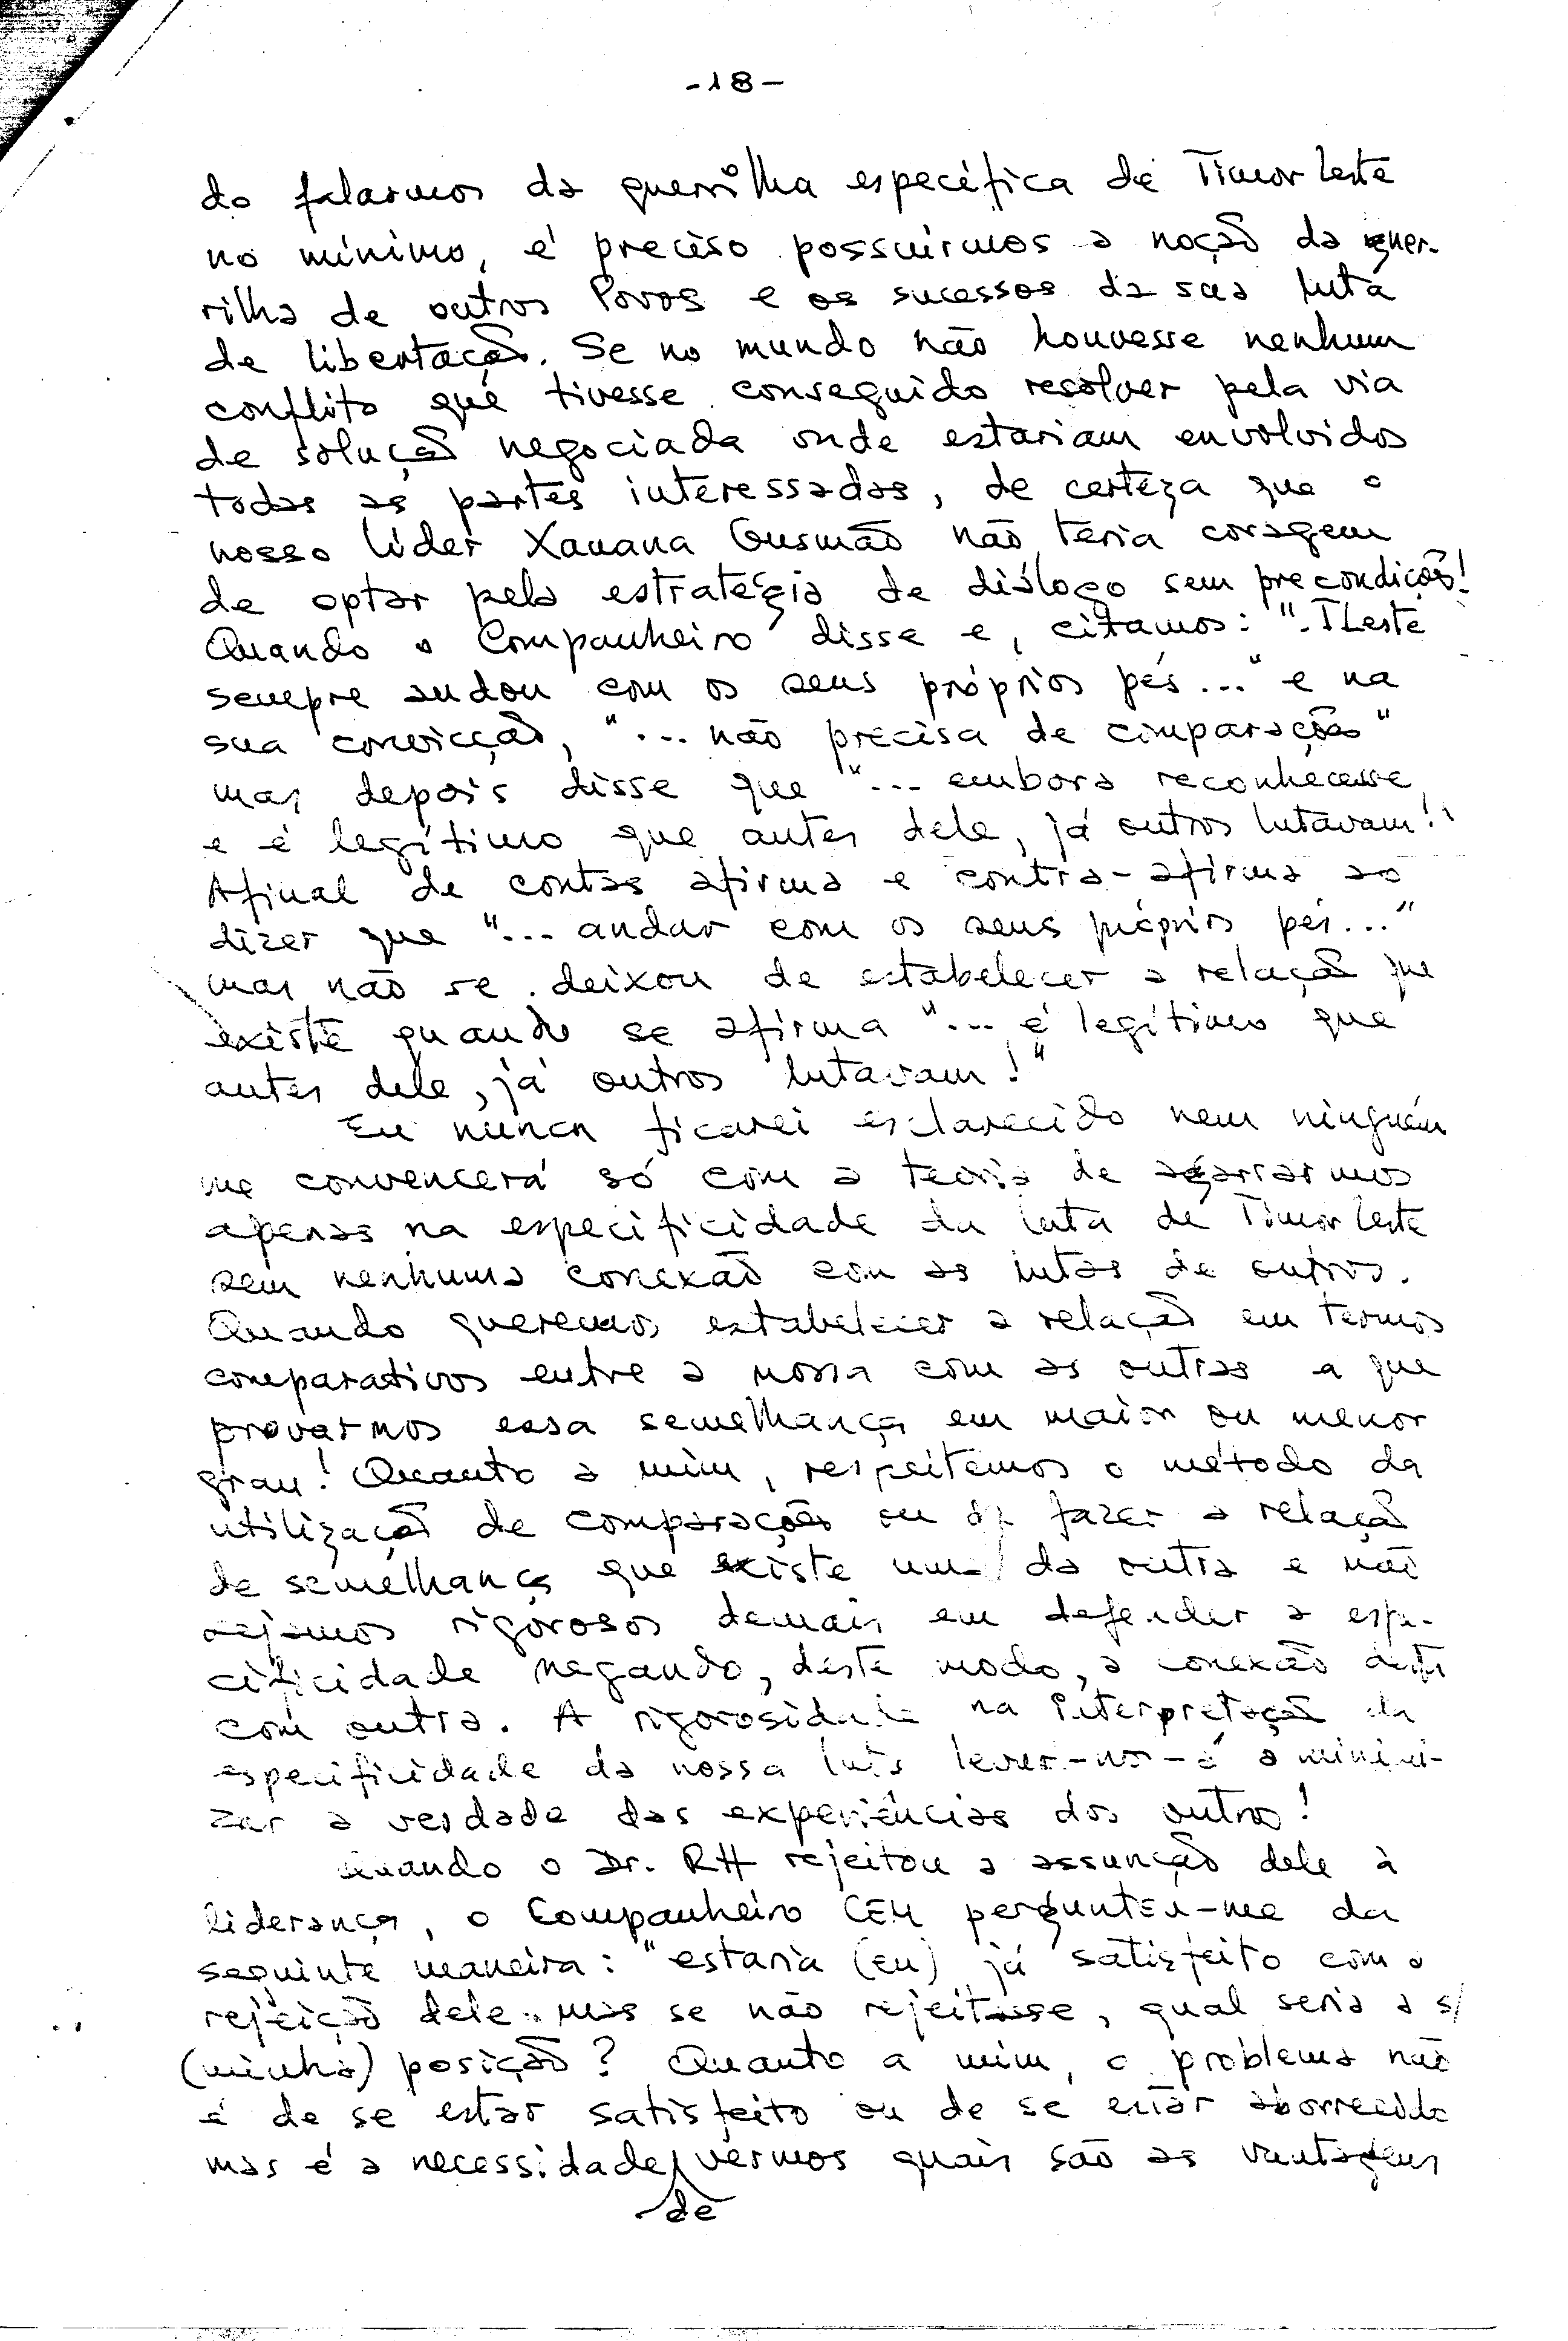 -18-
do falarmos da guerrilha específica de Timor Leste
no mínimo, é preciso possuirmos a noção da guer-
rilha de outros Povos e os sucessos da sua luta
de libertação. Se no mundo não houvesse nenhum
conflito que tivesse conseguido resolver pela via
de solução negociada onde estariam envolvidos
todas as partes interessadas, de certeza que o
nosso líder Xanana Gusmão não teria coragem
de optar pela estratégia de diálogo sem precondição!
Quando o Companheiro disse e, citamos: "TLeste
sempre andou com os seus próprios pés..." e na
sua convicção, "... não precisa de comparações"
mas depois disse que "... embora reconhecesse
e é legítimo que antes dele, já outros lutavam!"
Afinal de contas afirma e contra-afirma ao
dizer que "... andar com os seus próprios pés..."
mas não se deixou de estabelecer a relação que
existe quando se afirma "... é legítimo que
antes dele, já outros lutavam!"
Eu nunca ficarei esclarecido nem ninguém
me convencerá só com a teoria de agarrarmos
apenas na especificidade da luta de Timor Leste
sem nenhuma conexão com as lutas de outros.
Quando queremos estabelecer a relação em termos
comparativos entre a nossa com as outras a que
provarmos essa semelhança em maior ou menor
grau! Quanto a mim, respeitemos o método da
utilização de comparações ou fazer a relação
de semelhança que existe uma da outra e não
sejamos rigorosos demais em defender a espe-
cificidade negando, deste modo, a conexão desta
com outra. A rigorosidade na interpretação da
especificidade da nossa luta levar-nos-á a minimi-
zar a verdade das experiências dos outros!
Quando o Dr. RH rejeitou a assunção dele à
liderança, o Companheiro CEM perguntou-me da
seguinte maneira: "estaria (eu) já satisfeito com a
rejeição dele. mas se não rejeitasse, qual seria a s/
(minha) posição? Quanto a mim, o problema não
é de se estar satisfeito ou de se estar aborrecido
mas é a necessidade de vermos quais são as vantagens